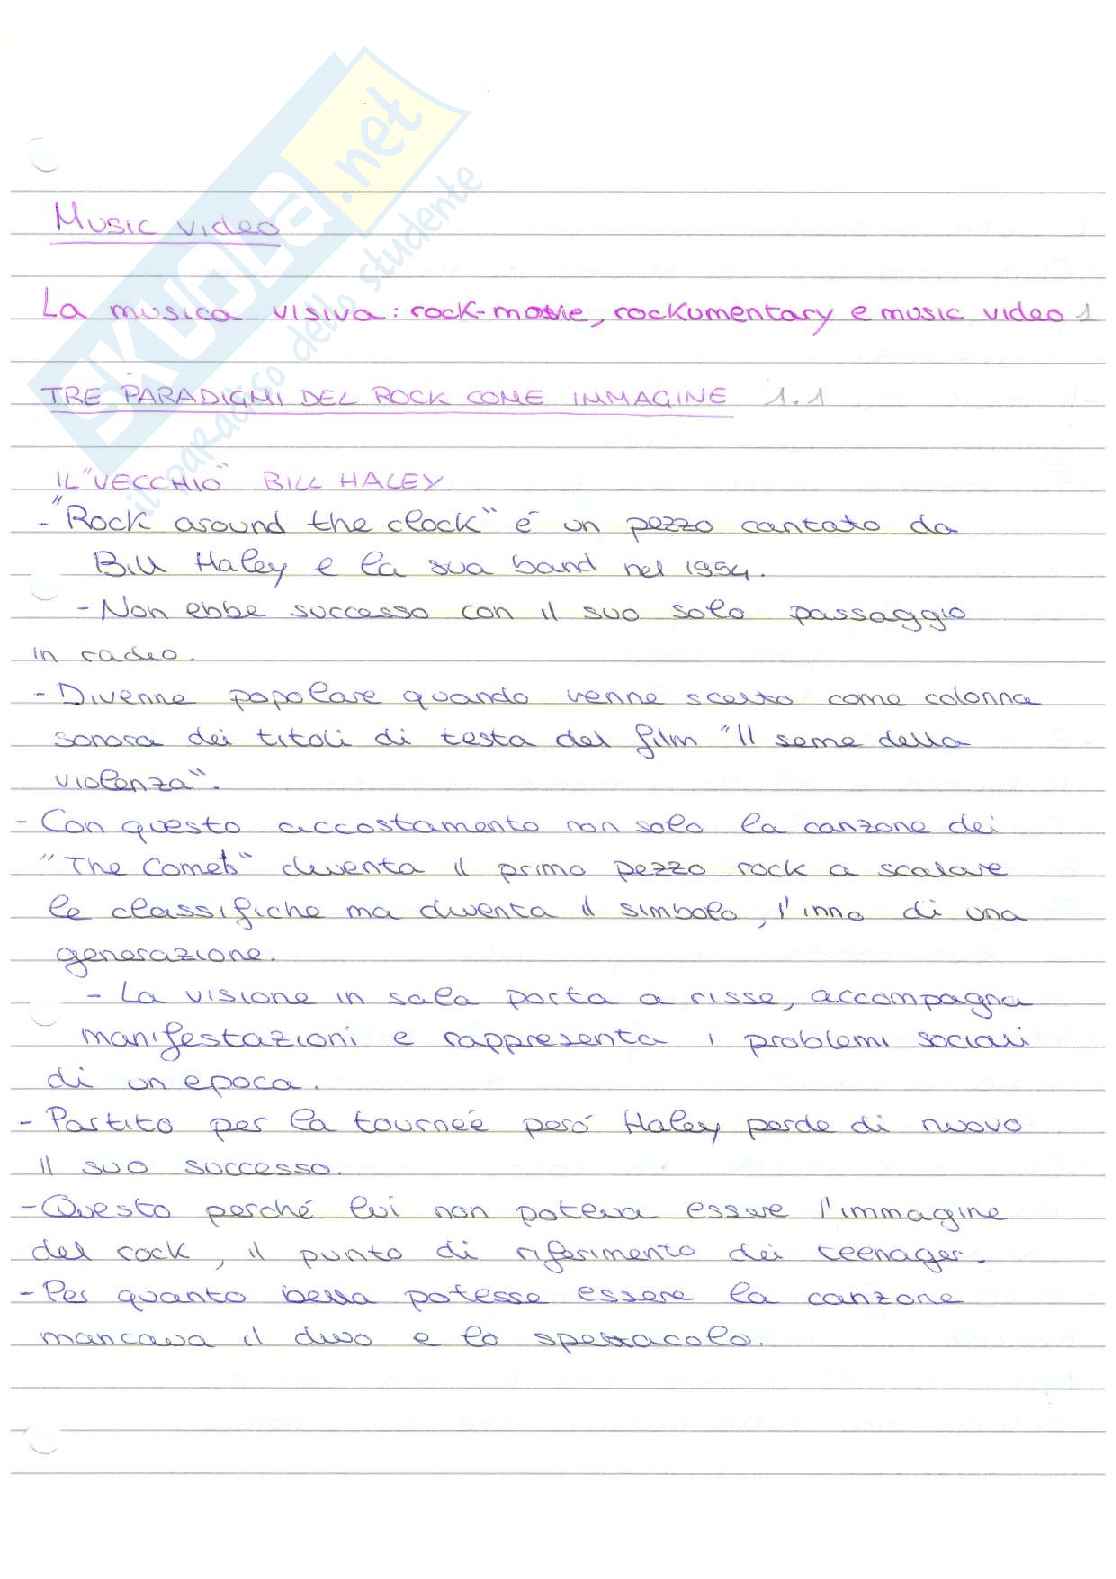 SKUOLA.net
il paradiso dello studente
Music video
La musica visiva: rock-movie, rockumentary e music video 1
TRE PARADIGMI DEL ROCK COME IMMAGINE 1.1
IL "VECCHIO" BILL HALEY
- "Rock around the clock" é un pezzo cantato da
Bill Haley e la sua band nel 1954.
- Non ebbe successo con il suo solo passaggio
in radio.
- Divenne popolare quando venne scelto come colonna
sonora dei titoli di testa del film "Il seme della
violenza".
- Con questo accostamento non solo la canzone dei
"The Comets" diventa il primo pezzo rock a scalare
le classifiche ma diventa il simbolo, l'inno di una
generazione.
- La visione in sala porta a risse, accompagna
manifestazioni e rappresenta i problemi sociali
di un epoca.
- Partito per la tourneé peró Haley perde di nuovo
il suo successo.
- Questo perché lui non poteva essere l'immagine
del rock, il punto di riferimento dei teenager.
- Per quanto bella potesse essere la canzone
mancava il divo e lo spettacolo.